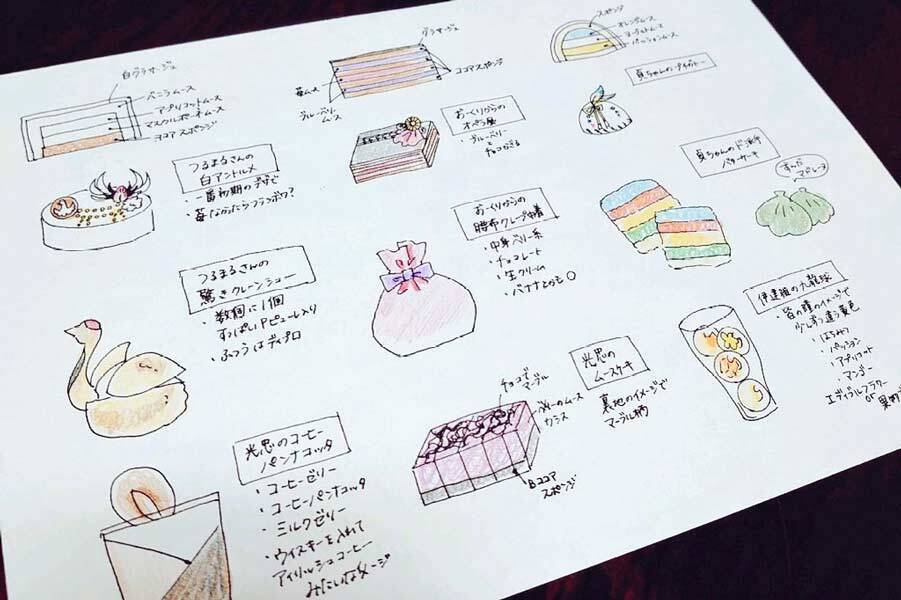 白グラサージュ
バニラムース
アプリコットムース
マスカルポーネムース
ココア スポンジ
つるまるさんの
白アントルメ
・一番初期のデザで
・苺なかったらフランボワ?
グラサージュ
苺ムース
ブルーベリー
ムース
ココアスポンジ
おーくりからの
オペラ風
・ブルーベリー
スポンジ
オレンジムース
ヨーグルトムース
パッションムース
貞ちゃんの
貞ちゃんのド派手
バターケーキ
ずんだ
マドレーヌ
つるまるさんの
驚きクレーンシュー
・数個に1個
すっぱいピューレ入り
・ふつうはディプロ
おーくりからの
腰布クレープ巾着
・中身ベリー系
・チョコレート
・生クリーム
・バナナとかも〇
伊達組の九龍球
・皆の瞳のイメージで
少しずつ違う黄色
・はちみつ
・パッション
・アプリコット
・マンゴー
エディブルフラワー
or
光忠の
ムースケーキ
裏地のイメージで
マーブル柄
チョコで
マーブル
カシス
Bココア
スポンジ
光忠のコーヒー
パンナコッタ
・コーヒーゼリー
・コーヒーパンナコッタ
・ミルクゼリー
・ウイスキーを入れて
アイリッシュコーヒー
みたいなイメージ